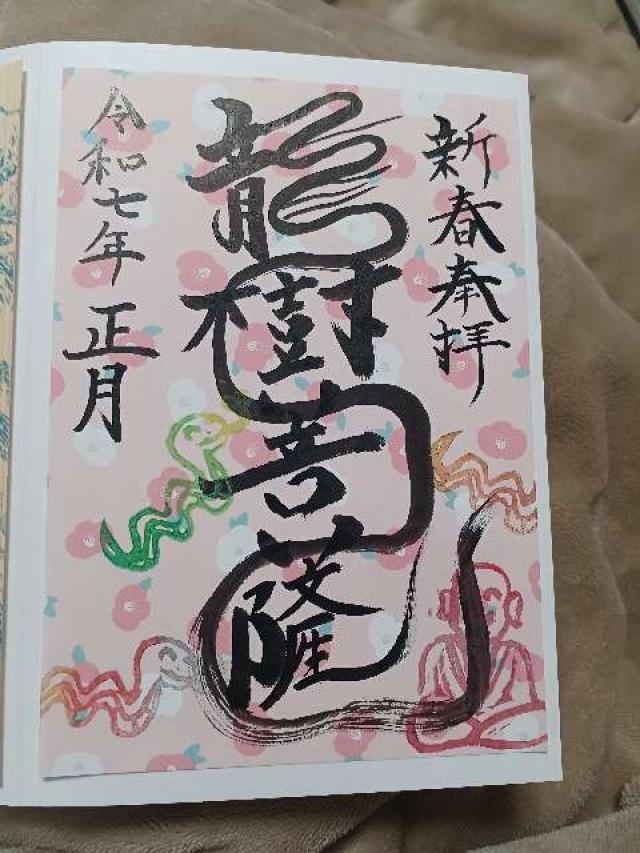 新春奉拝
龍樹菩薩
令和七年正月